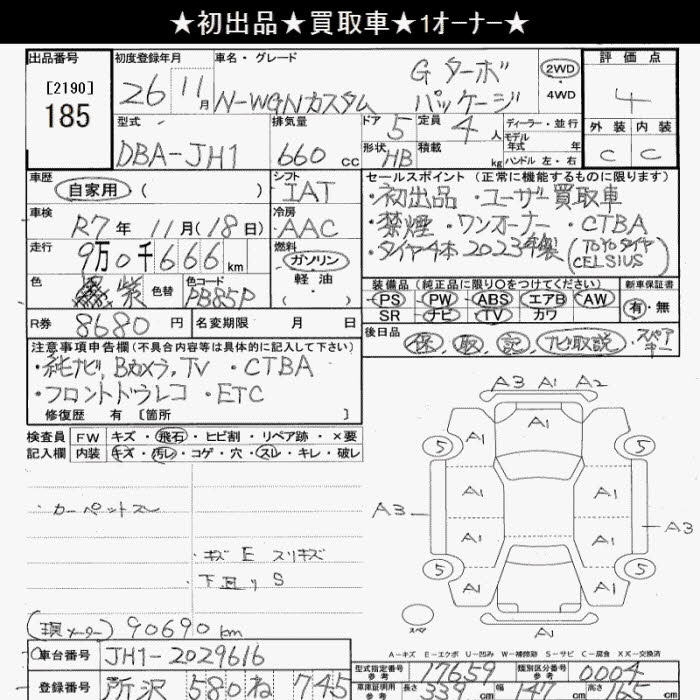 ★初出品★買取車★1ｵｰﾅｰ★
出品番号
[2190]
185
初度登録年月
26 11月
車名・グレード
N-WGNカスタム
G ターボ
パッケージ
2WD
・4WD
評価点
4
外装 内装
C C
型式
DBA-JH1
排気量
660 cc
ドア 5
定員 4 人
形状 HB
積載 kg
ディーラー・並行
モデル年式 年
ハンドル 左・右
車歴
自家用 ( )
シフト
IAT
セールスポイント (正常に機能するものに限ります)
・初出品 ・ユーザー買取車
・禁煙 ・ワンオーナー ・CTBA
・タイヤ4本 2023年製 (TOYOタイヤ CELSIUS)
車検
R7年 11月(18日)
冷房
AAC
走行
9万0千666 km
燃料
ガソリン
軽油
( )
色
紫
色替
色コード
PB85P
装備品 (純正品に限り○をつけてください)
PS PW ABS エアB AW
SR ナビ TV カワ
新車保証書
有・無
R券
8680 円
名変期限 月 日
後日品
保, 取, 記, ナビ取説, スペアキー
注意事項申告欄(不具合内容等は具体的に記入して下さい)
・純ナビ, Bカメラ, TV ・CTBA
・フロントドラレコ ・ETC
修復歴 有 〔箇所 〕
検査員記入欄
FW キズ・飛石・ヒビ割・リペア跡・×要
内装 キズ・汚レ・コゲ・穴・スレ・キレ・破レ
・カーペットスレ
・キズ E スリキズ
・下廻り S
(現メーター) 90690 km
A3 A1 A2
A1
5 A1 A1 5
A1 A1
A3 A3
A1 A1
5 A1 A1 5
スペア
A1
A-キズ E-エクボ U-凹み W-補修跡 S-サビ C-腐食 XX-交換済
車台番号
JH1-2029616
型式指定番号 参考
17659
類別区分番号 参考
0004
登録番号
所沢 580 ね 745
車庫証明用 参考
長さ 339 cm
幅 147 cm
高さ cm